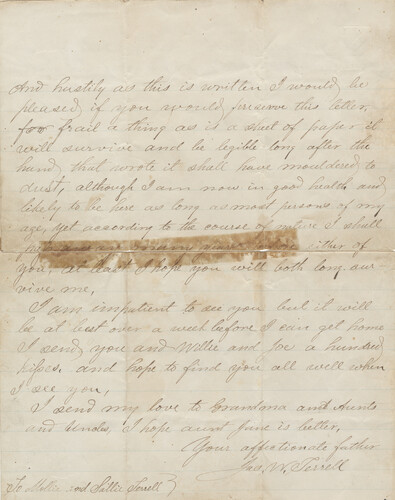 And hastily as this is written I would be
pleased if you would preserve this letter,
for frail a thing as is a sheet of paper it
will survive and be legible long after the
hand that wrote it shall have mouldered to
dust, although I am now in good health and
likely to be here as long as most persons of my
age, yet according to the course of nature I shall
either of
you, at least I hope you will both long sur-
vive me,
I am impatient to see you but it will
be at best over a week before I can get home
I send you and Willie and Joe a hundred
kisses, and hope to find you all well when
I see you,
I send my love to Grandma and Aunts
and Uncles, I hope aunt Jane is better,
Your affectionate father
Jno. W. Terrell
To Mollie and Sallie Terrell